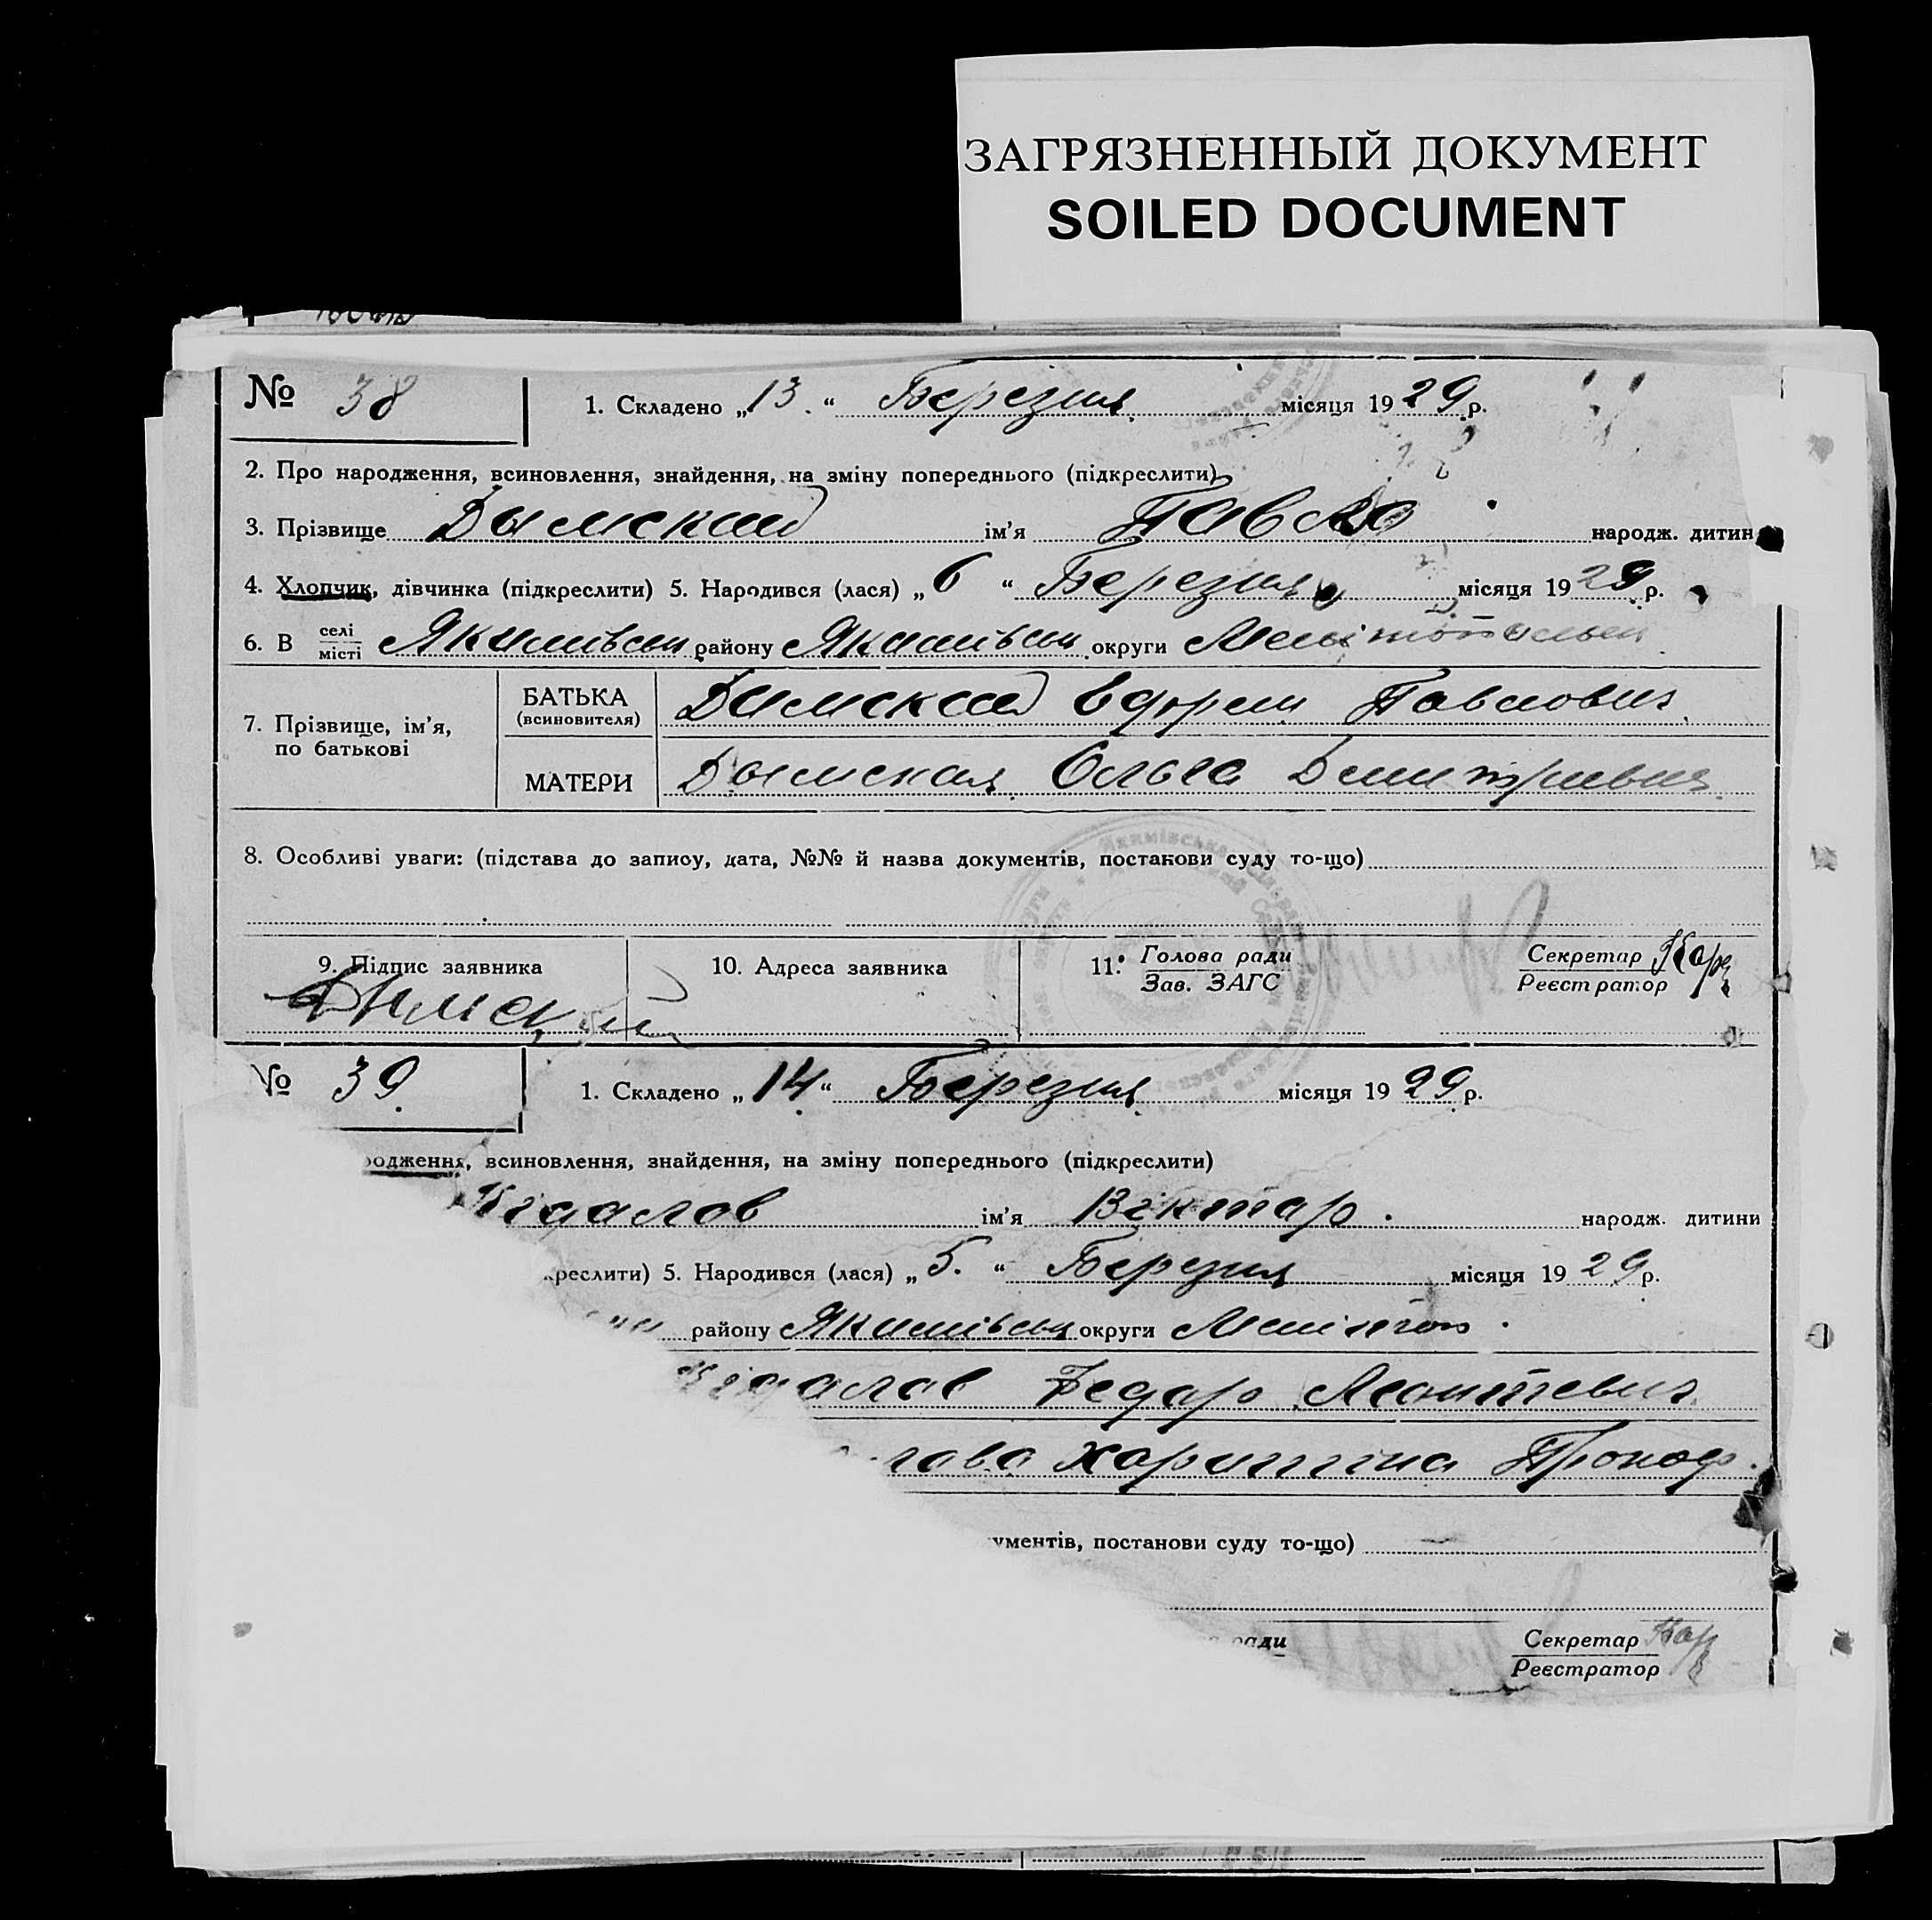 ЗАГРЯЗНЕННЫЙ ДОКУМЕНТ
SOILED DOCUMENT
№ 38 1. Складено „13.“ Березня місяця 1929 р.
2. Про народження, всиновлення, знайдення, на зміну попереднього (підкреслити)
3. Прізвище Дымский ім'я Павло народж. дитин
4. Хлопчик, дівчинка (підкреслити) 5. Народився (лася) „6“ Березня місяця 1929 р.
6. В селі місті Якимівськ району Якимівськ округи
7. Прізвище, ім'я, по батькові
БАТЬКА (всиновителя) Димский Ефрем Павлович
МАТЕРИ Дымская Ольга
8. Особливі уваги: (підстава до запису, дата, №№ й назва документів, постанови суду то-що)
9. Підпис заявника 10. Адреса заявника 11. Голова ради Зав. ЗАГС Секретар Реєстратор
Димский
№ 39. 1. Складено „14“ Березня місяця 1929 р.
родження, всиновлення, знайдення, на зміну попереднього (підкреслити)
ім'я Віктар. народж. дитини
креслити) 5. Народився (лася) „5.“ Березня місяця 1929 р.
району Якимівськ округи Мелітоп.
Федар Леонтевич
Харитина Прокоф.
ументів, постанови суду то-що)
ради Секретар Реєстратор